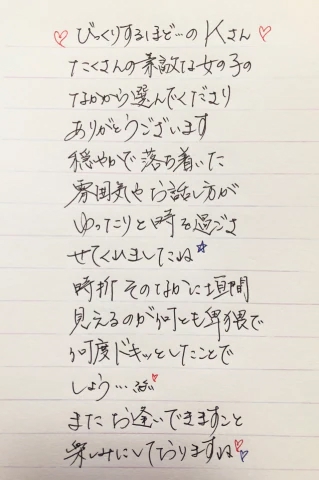 ♡びっくりするほど…の Kさん♡
たくさんの素敵な女の子の
なかから選んでくださり
ありがとうございます
穏やかで落ち着いた
雰囲気やお話し方が
ゆったりと時を過ごさ
せてくれましたね☆
時折そのなかに垣間
見えるのが何とも卑猥で
何度ドキッとしたことで
しょう…♡
またお逢いできますこと
楽しみにしておりますね♡♡